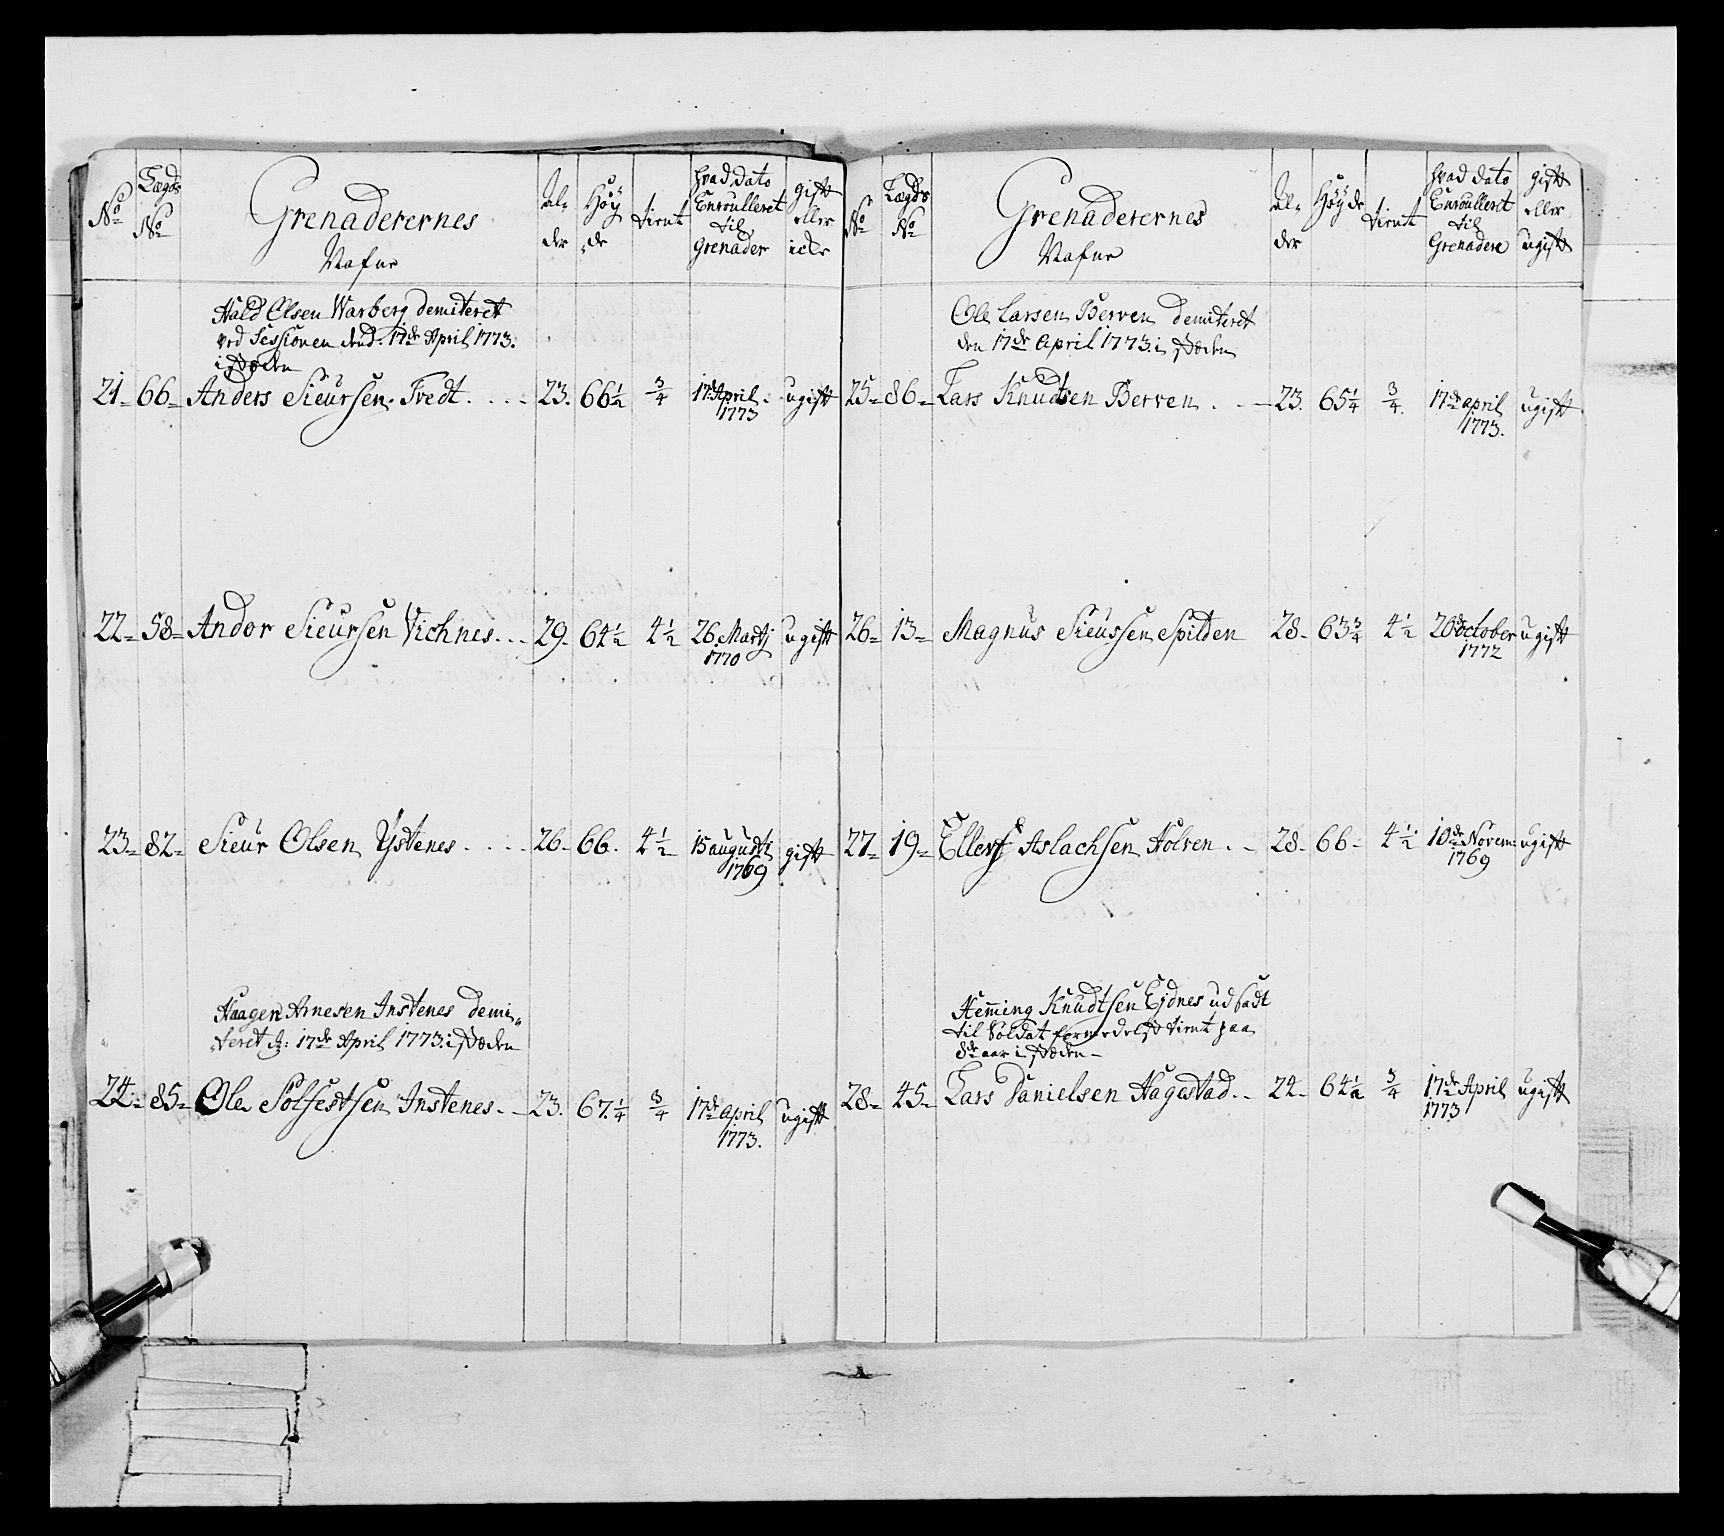 No Lægds No Grenaderernes Nafne Al- der Høy- de tient hvad dato Enroulleret til Grenader gift eller icke
Hald Olsen Warberg demiteret
ved Sessionen dend: 17de April 1773.
i stæden
21 66 Anders Sieursen Tvedt 23. 66 1/2 3/4 17de April 1773 ugift
22 58 Andor Sieursen Vichnes 29. 64 1/2 4 1/2 26 Martj 1770 ugift
23 82 Sieur Olsen Ystenes 26 66. 4 1/2 15 augusti 1769 gift
Haagen Arnesen Instenes demi-
teret d: 17de April 1773. i stæden
24 85 Ole Solfestsen Instenes 23. 67 1/4 3/4 17de april 1773. ugift
No Lægds No Grenaderernes Nafne Al- der Høyde tient hvad dato Enroulleret til Grenadere gift eller ugift
Ole Larsen Berven demiteret
den 17de April 1773. i stæden
25 86 Lars Knudtsen Berven 23. 65 1/4 3/4. 17de april 1773. ugift
26 13 Magnus Sieussen Spilden 28 63 3/4 4 1/2 20de october 1772 ugift
27 19 Ellert Aslachsen Holven 28 66 4 1/2 10de Novem: 1769 ugift
Hemming Knudtsen Ejdnes udsadt
til Soldat formedelst tient paa
8de aar i stæden
28 45 Lars Danielsen Hagestad 24 64 1/2 3/4 17de April 1773 ugift